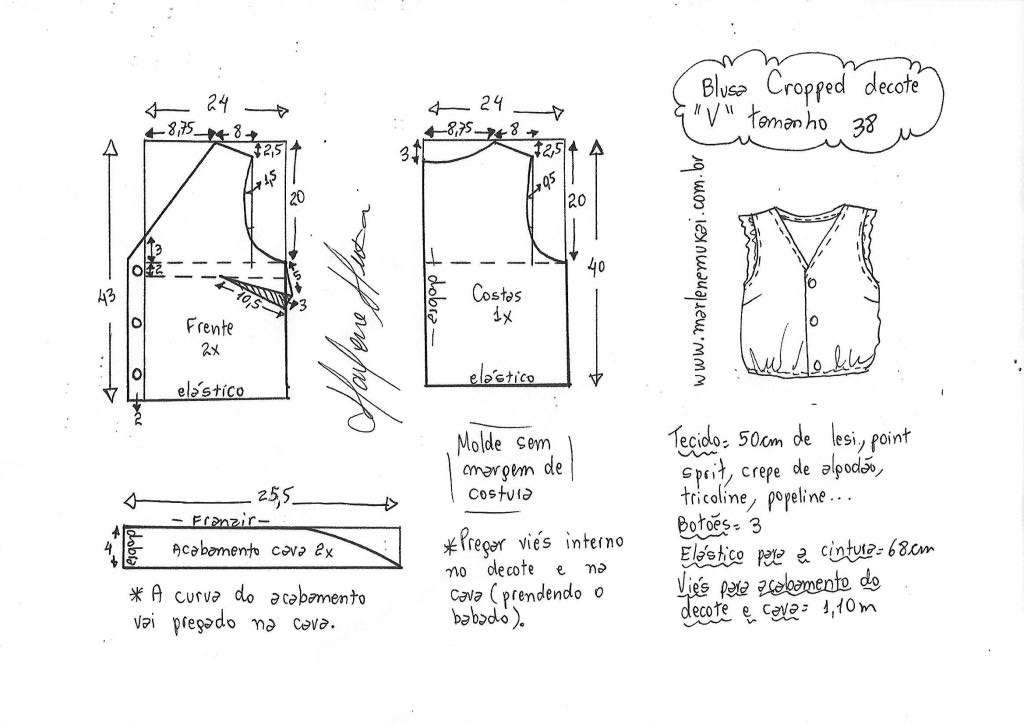 Blusa Cropped decote
"V" tamanho 38
www.marlenemukai.com.br
24
8,75 8
2,5
1,5
20
3
2
5
10,5
3
43
Frente
2x
elástico
2
24
8,75 8
3
2,5
0,5
20
40
dobra
Costas
1x
elástico
25,5
Franzir
4
dobra
Acabamento cava 2x
* A curva do acabamento
vai pregado na cava.
Molde sem
margem de
costura
* Pregar viés interno
no decote e na
cava (prendendo o
babado).
Tecido= 50cm de lesi, point
sprit, crepe de algodão,
tricoline, popeline...
Botões= 3
Elástico para a cintura= 68cm
Viés para acabamento do
decote e cava= 1,10m